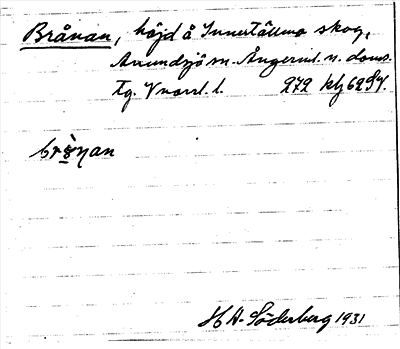 Brånan, höjd å Innertällmo skog,
Anundsjö sn. Ångerml. n. doms.
tg. Vnorrl. l. 272 klj 62 SV.
Söderberg 1931